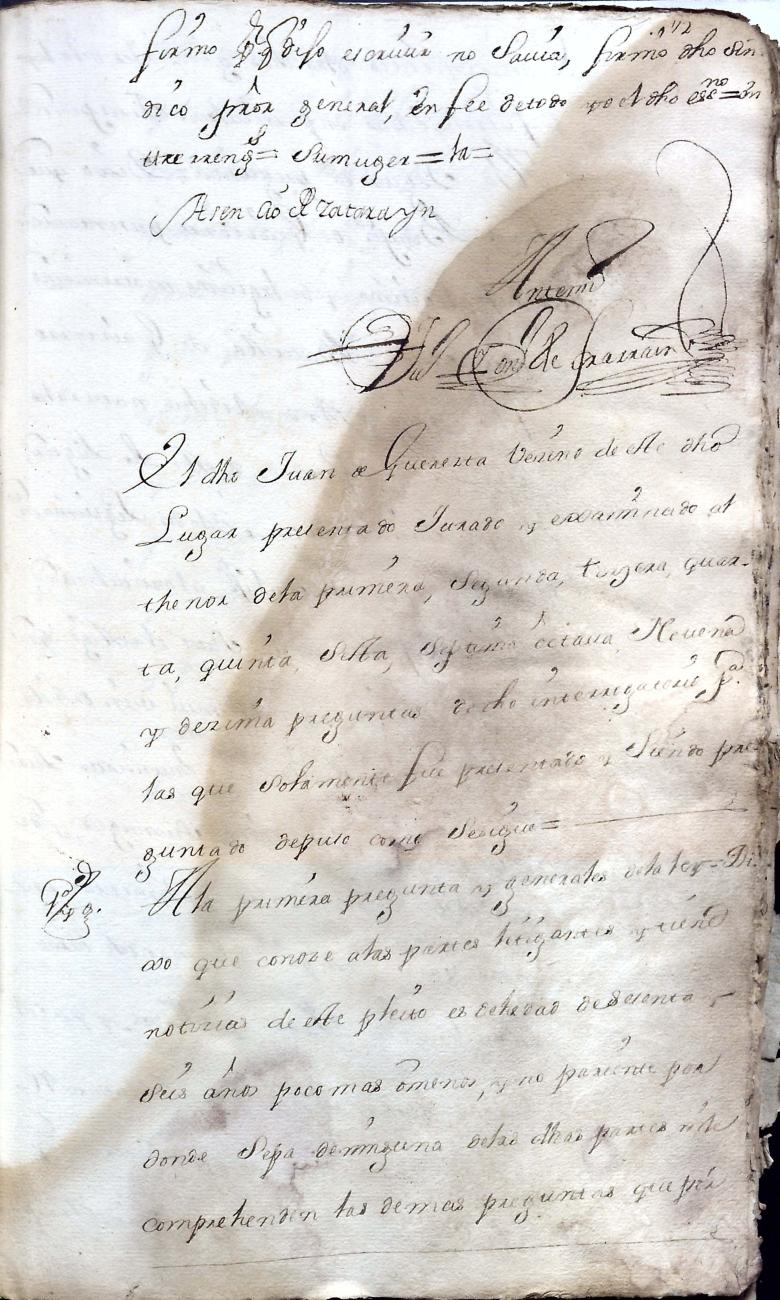 firmo pq dijo escruuir no Sauia, firmo dho Sin
dico pror general, En fee de todo yo el dho essno = en
tre rrengs = Su muger = la =
Asencio de Zatarayn
Antemi
El dho Juan de Querexta Vezino de este dho
Lugar presentado Jurado y examinado al
thenor dela primera, Segunda, terzera, quar-
ta, quinta, Sesta, Septima octava, Novena
y dezima preguntas de dho interrogatorio pa.
las que Solamente fue presentado y Siendo pre
guntado depuso como Sesigue =
Pa. Prega.
Ala primera pregunta y generales dela ley = Di
xo que conoze alas partes litigantes y tiene
notizias de este pleito es dehedad de Sesenta y
Seis años poco mas omenos, y no pariente por
donde Sepa deninguna delas dhas partes nile
comprehenden las demas preguntas que por